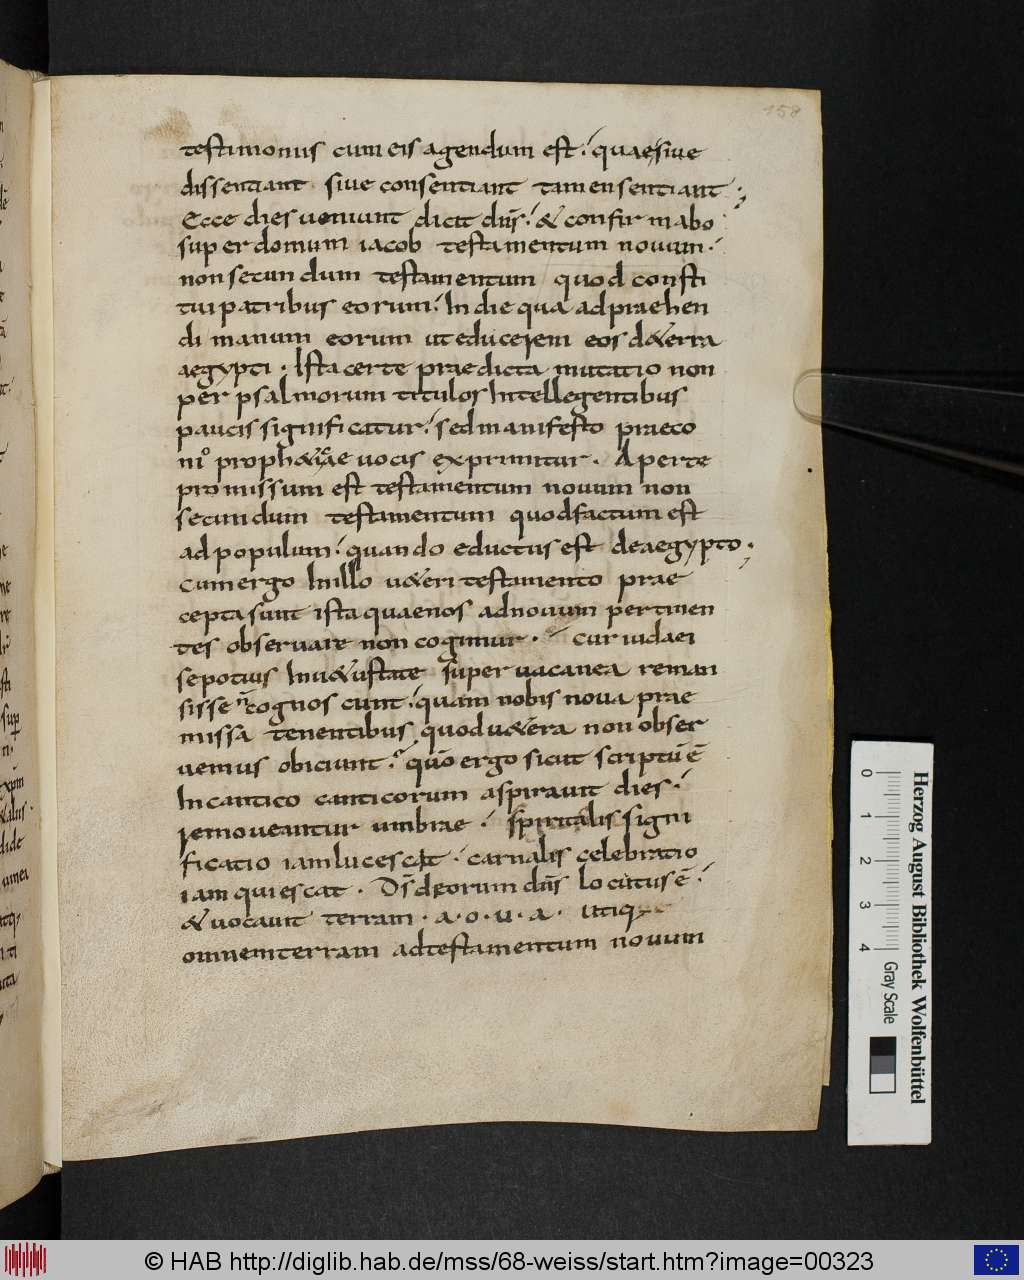 158
testimoniis cum eis agendum est. quae sive
dissentiant sive consentiant tamen sentiant;
Ecce dies veniunt dicit dn̄s. & confirmabo
super domum iacob testamentum novum.
non secundum testamentum quod consti
tui patribus eorum. In die qua adpraehen
di manum eorum ut educerem eos d&erra
aegypti. Ista certe praedicta mutatio non
per psalmorum titulos Intellegentibus
paucis significatur. sed manifesto praeco
nio proph&icae vocis exprimitur. Aperte
promissum est testamentum novum non
secundum testamentum quod factum est
ad populum. quando eductus est de aegypto;
Cum ergo In illo v&eri testamento prae
cepta sunt ista quae nos ad novum pertinen
tes observare non cogimur. cur iudaei
se potius In v&ustate supervacanea reman
sisse n̄ cognoscunt. quam nobis nova prae
missa tenentibus quod v&era non obser
vemus obiciunt. quō ergo sicut scriptū ē
In cantico canticorum aspiravit dies.
removeantur umbrae. spiritalis signi
ficatio iam lucescat. carnalis celebratio
iam quiescat. Ds̄ deorum dn̄s locutus ē.
& vocavit terram. a. o. u. a. utiq;
omnem terram ad testamentum novum
0 1 2 3 4
Herzog August Bibliothek Wolfenbüttel
Gray Scale
© HAB http://diglib.hab.de/mss/68-weiss/start.htm?image=00323